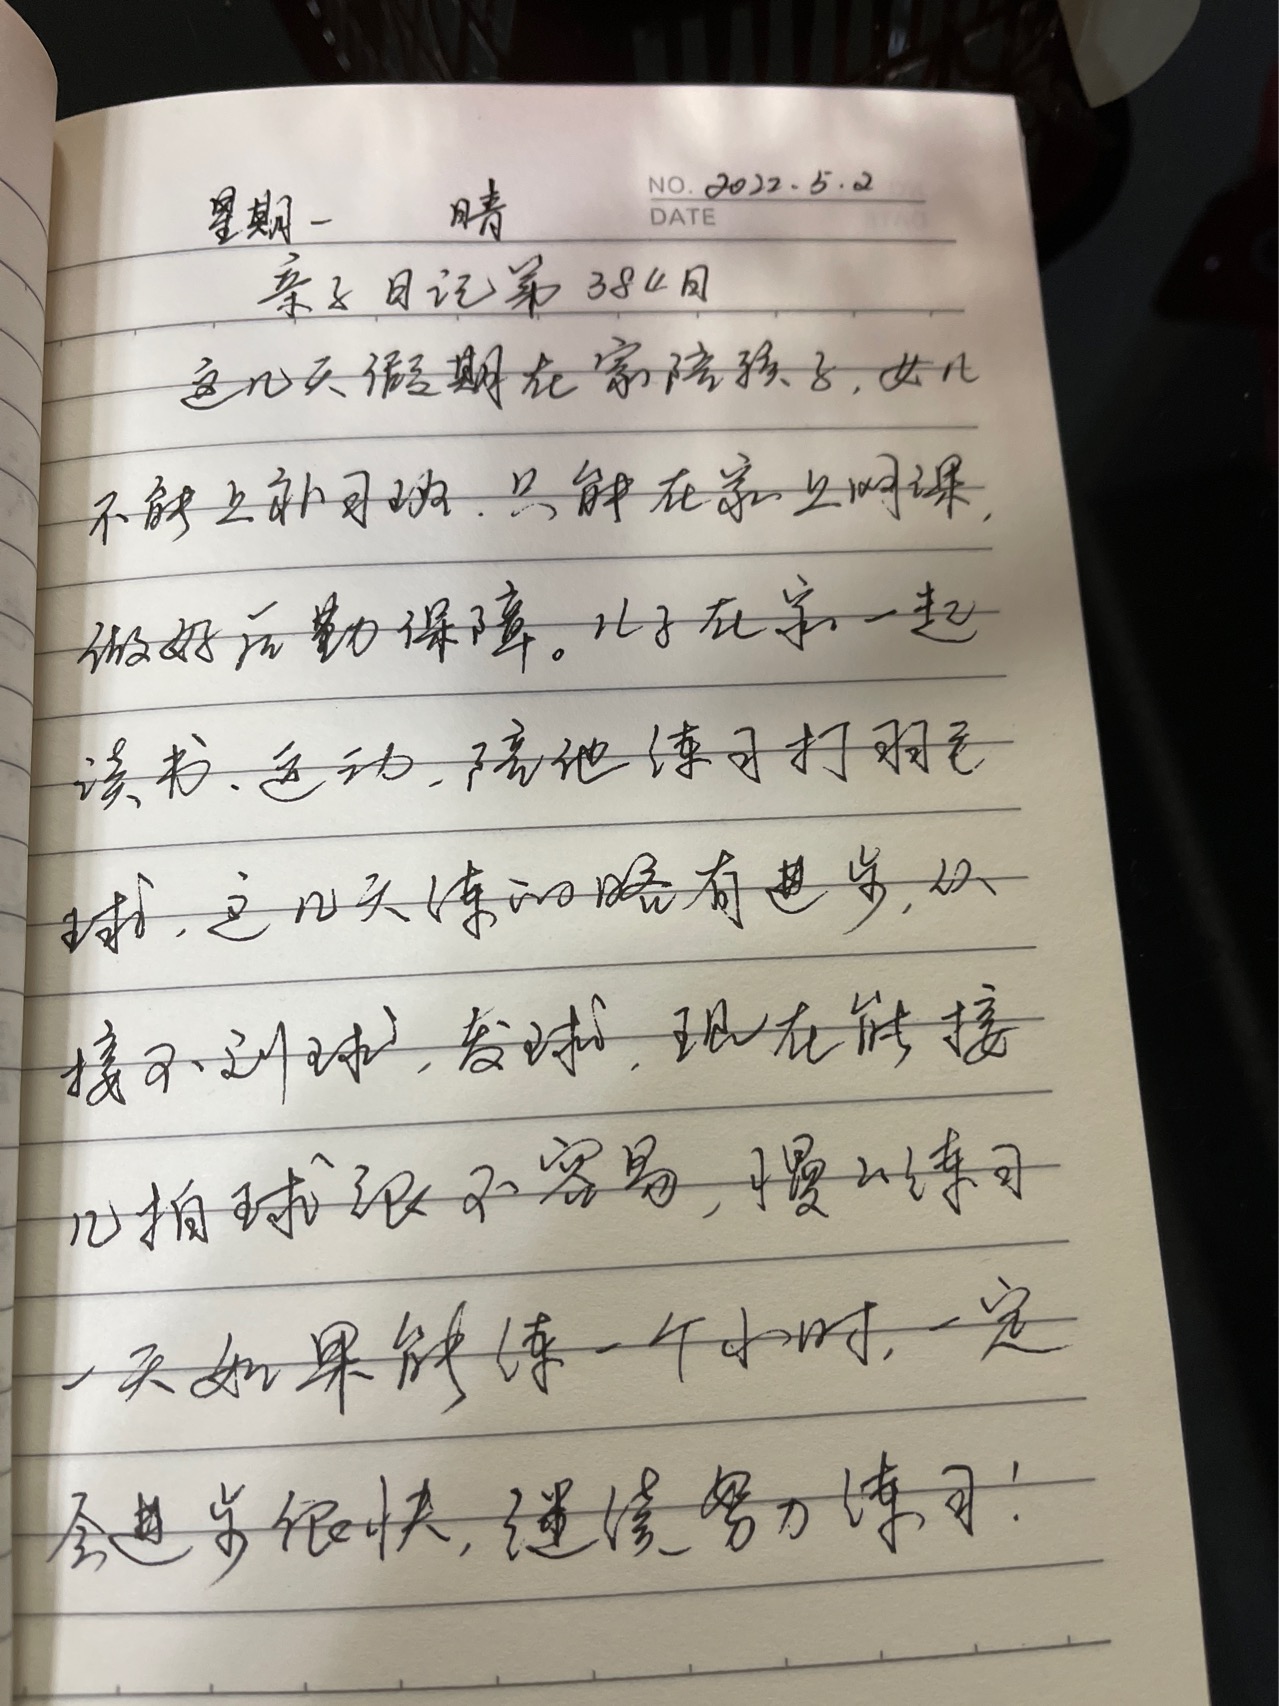 星期一 晴 NO. 2022.5.2
DATE
亲子日记第384日
这几天假期在家陪孩子,女儿
不能上补习班.只能在家上网课,
做好后勤保障。儿子在家一起
读书、运动,陪他练习打羽毛
球,这几天练的略有进步,从
接不到球,发球,现在能接
几拍球很不容易,慢慢练习
一天如果能练一个小时,一定
会进步很快,继续努力练习!